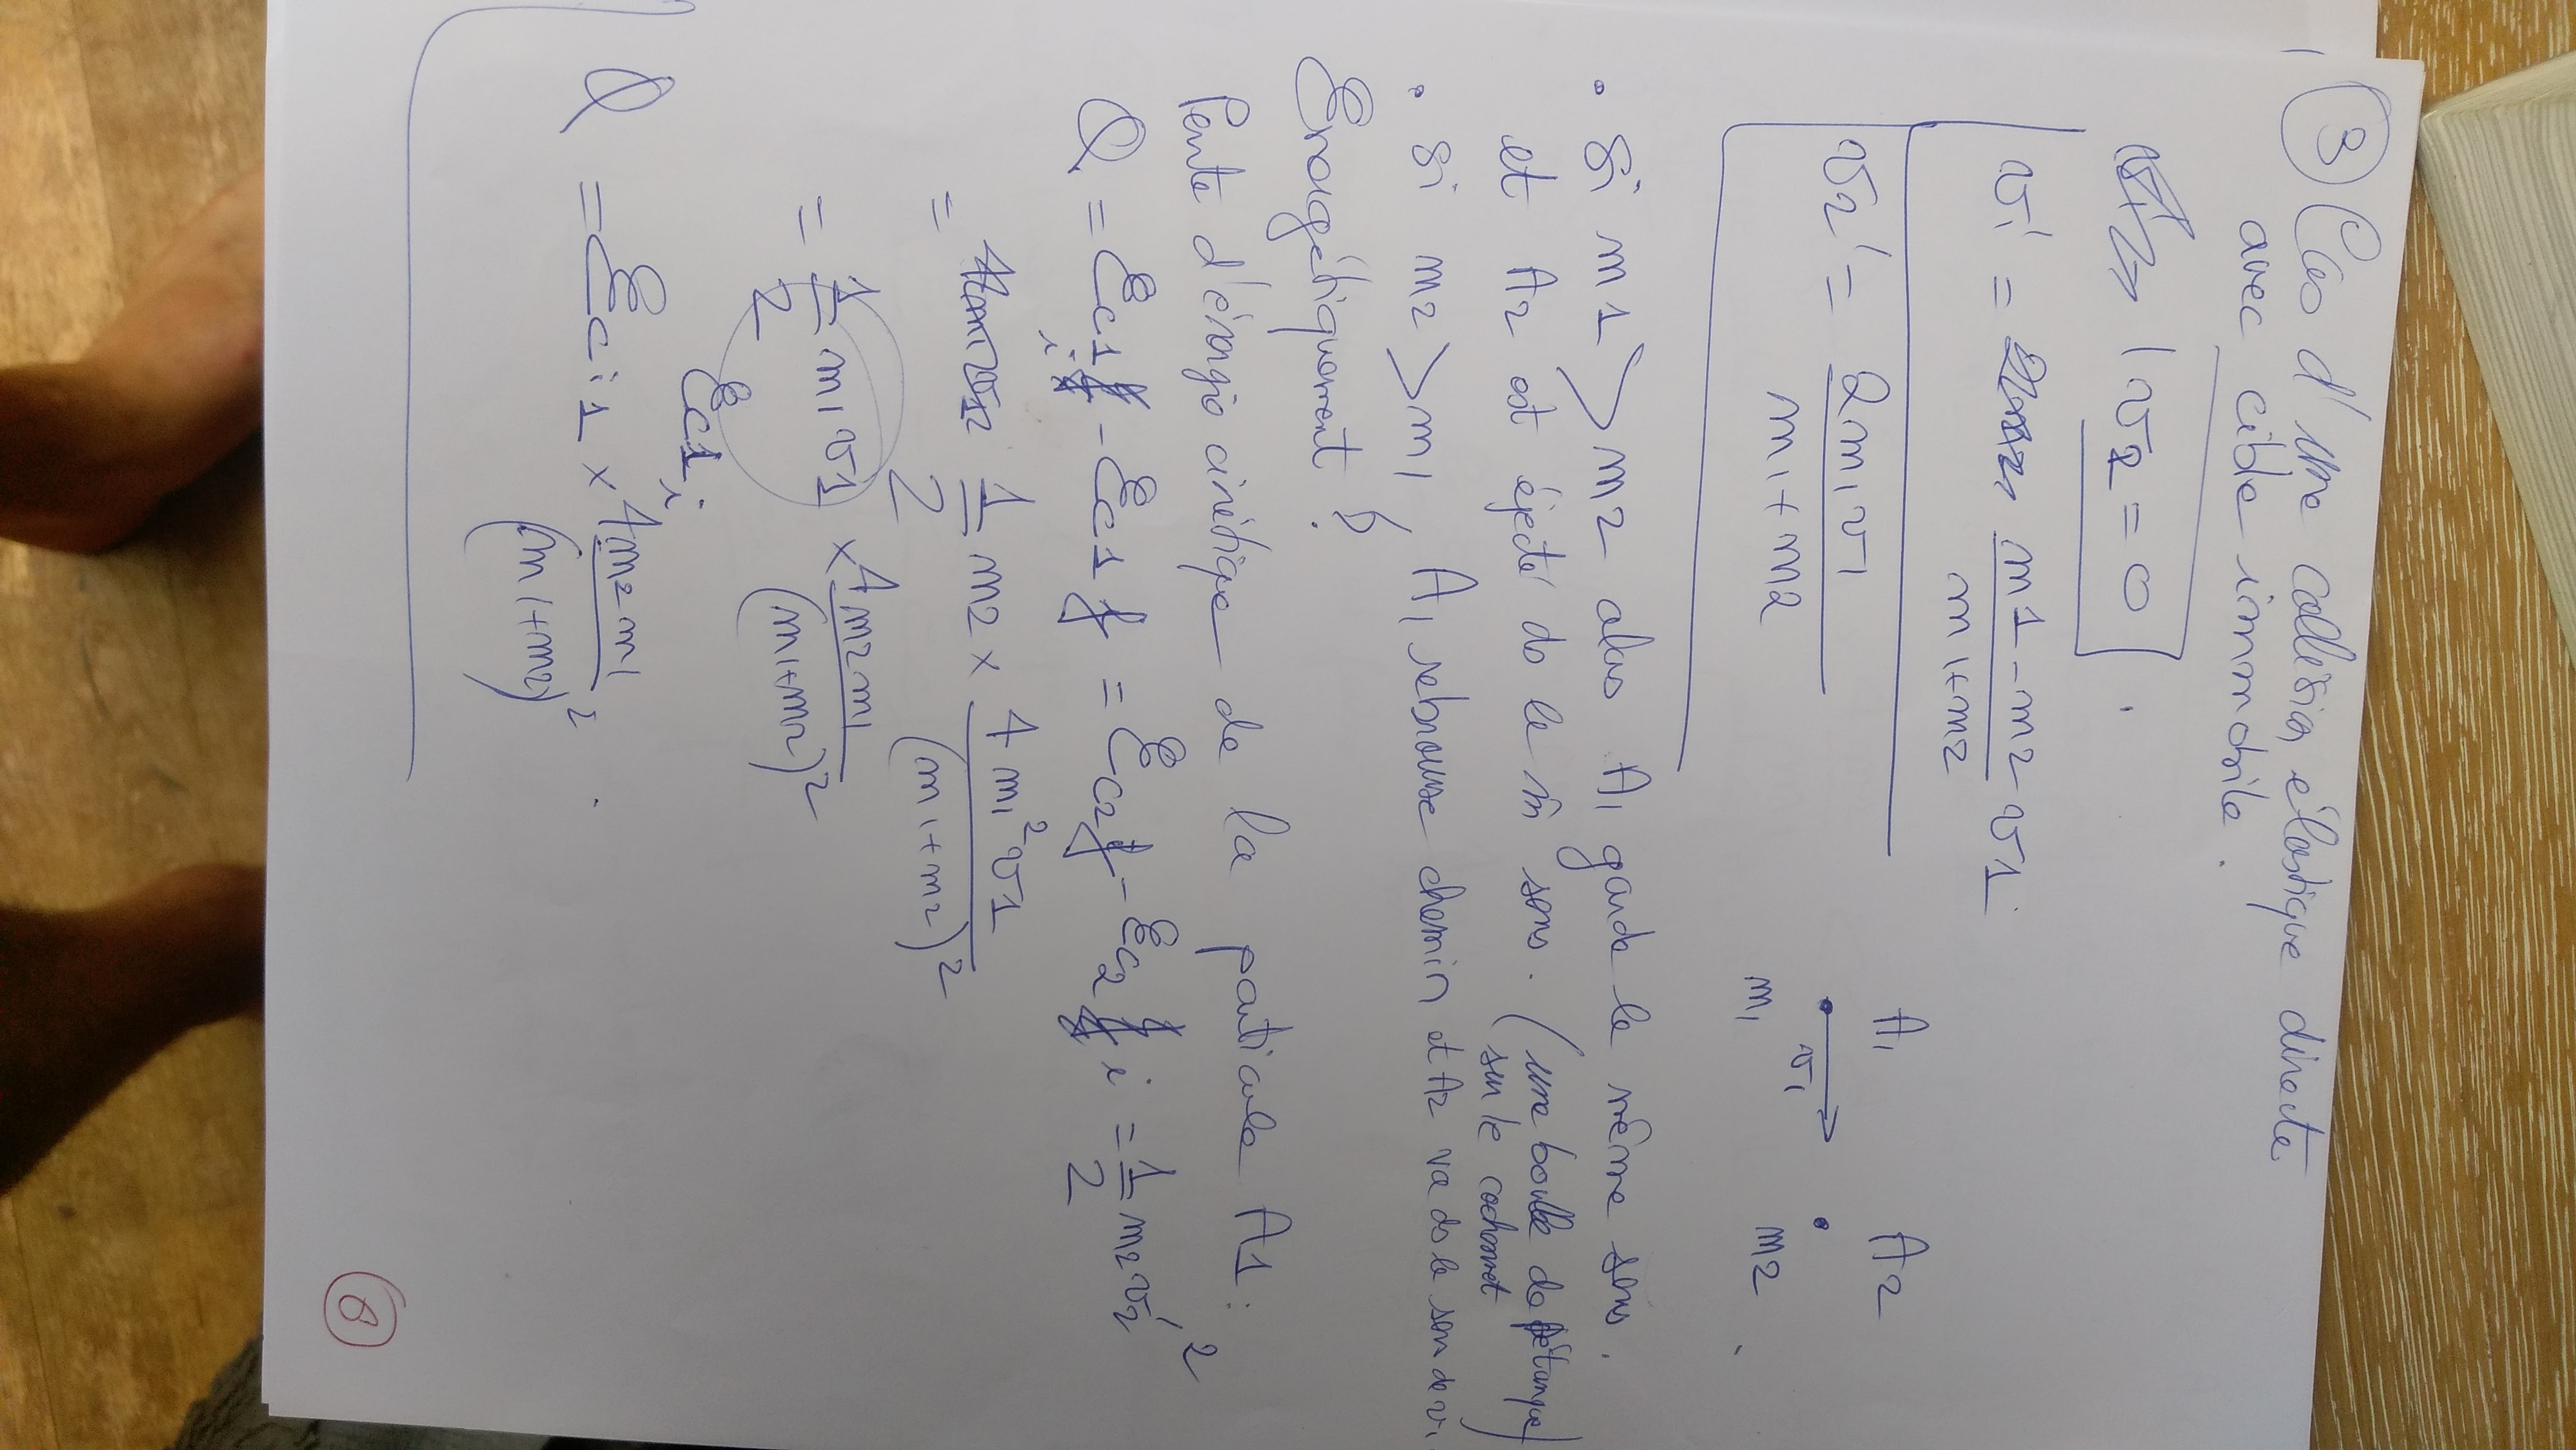 ③ Cas d'une collision élastique directe
avec cible immobile.
v2 = 0
v1' = m1-m2 v1
m1+m2
A1 A2
v1
m1 m2
v2' = 2m1v1
m1+m2
• Si m1 > m2 alors A1 garde le même sens.
et A2 est éjecté ds le m̂ sens. (une boule de pétanque
sur le cochonnet)
• Si m2 > m1, A1 rebrousse chemin et A2 va ds le sens de v1
Energétiquement :
Perte d'énergie cinétique de la particule A1 :
Q = Ec1i - Ec1f = Ec2f - Ec2i = 1/2 m2v2'²
= 1/2 m2 × 4m1²v1/(m1+m2)²
= 1/2 m1v1² × 4m2m1/(m1+m2)²
Ec1i
Q = Eci1 × 4m2m1/(m1+m2)².
⑥